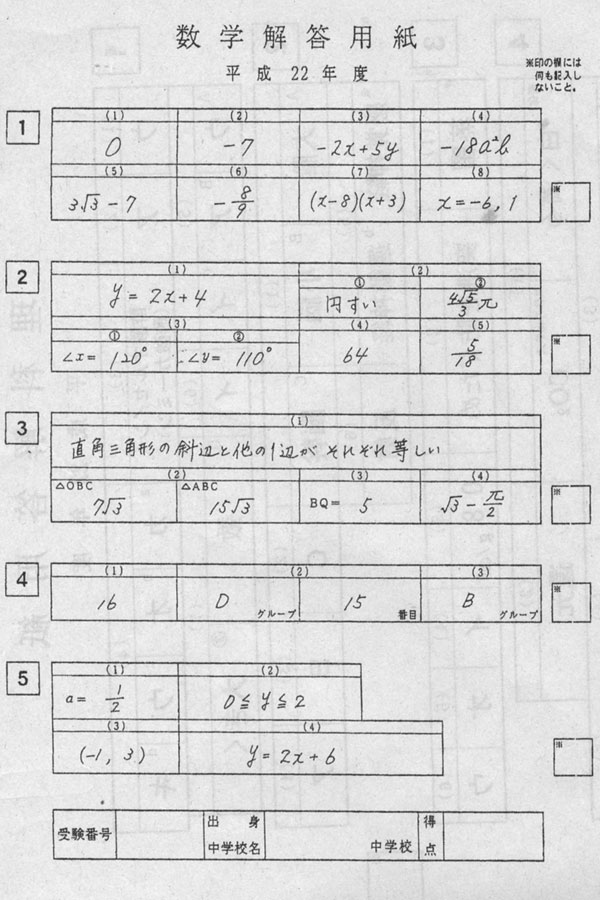 数学解答用紙
平成 22 年度
※印の欄には
何も記入し
ないこと。
1
(1) (2) (3) (4)
0 -7 -2x+5y -18a²b
(5) (6) (7) (8)
3√3-7 -8/9 (x-8)(x+3) x=-6, 1
※
2
(1) (2)
① ②
y=2x+4 円すい 4√5/3 π
(3) (4) (5)
① ②
∠x= 120° ∠y= 110° 64 5/18
※
3
(1)
直角三角形の斜辺と他の1辺が それぞれ等しい
(2) (3) (4)
△OBC △ABC
7√3 15√3 BQ= 5 √3-π/2
※
4
(1) (2) (3)
16 D グループ 15 番目 B グループ
※
5
(1) (2)
a= 1/2 0≦y≦2
(3) (4)
(-1, 3) y=2x+6
※
受験番号 出身 中学校名 中学校 得点